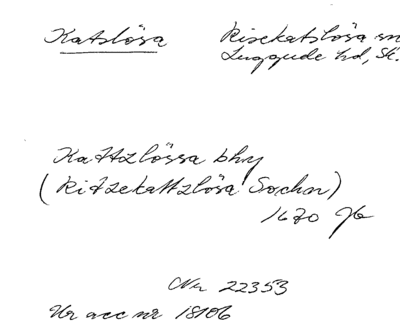 Katslösa Risekatslösa sn
Luggude hd, Sk.
Kattzlössa bhy
(Ritzekattzlösa Sochn)
1670 Jb
Nr 22353
Ur acc nr 18106